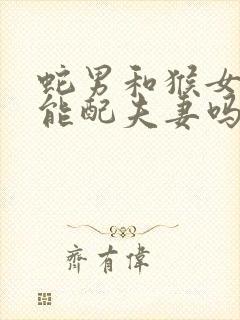 蛇男和猴女
能配夫妻吗
齐有偉